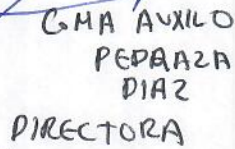 GMA AUXILO
PEDRAZA
DIAZ
DIRECTORA